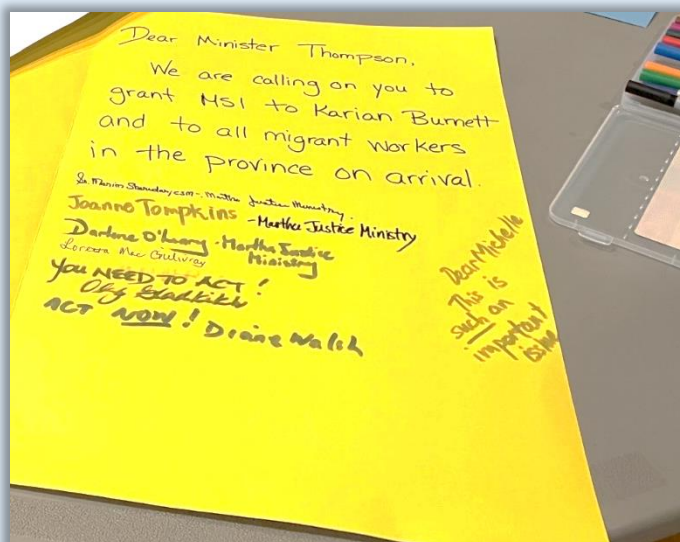 Dear Minister Thompson,
We are calling on you to
grant MSI to Karian Burnett
and to all migrant workers
in the province on arrival.
Sr. Marion Sheridan, csm - Martha Justice Ministry
Joanne Tompkins - Martha Justice Ministry
Darlene O'Leary - Martha Justice
Ministry
Loretta Mac Gillivray
YOU NEED TO ACT!
ACT NOW! Diane Walsh
Dear Michelle
This is
such an
important
issue